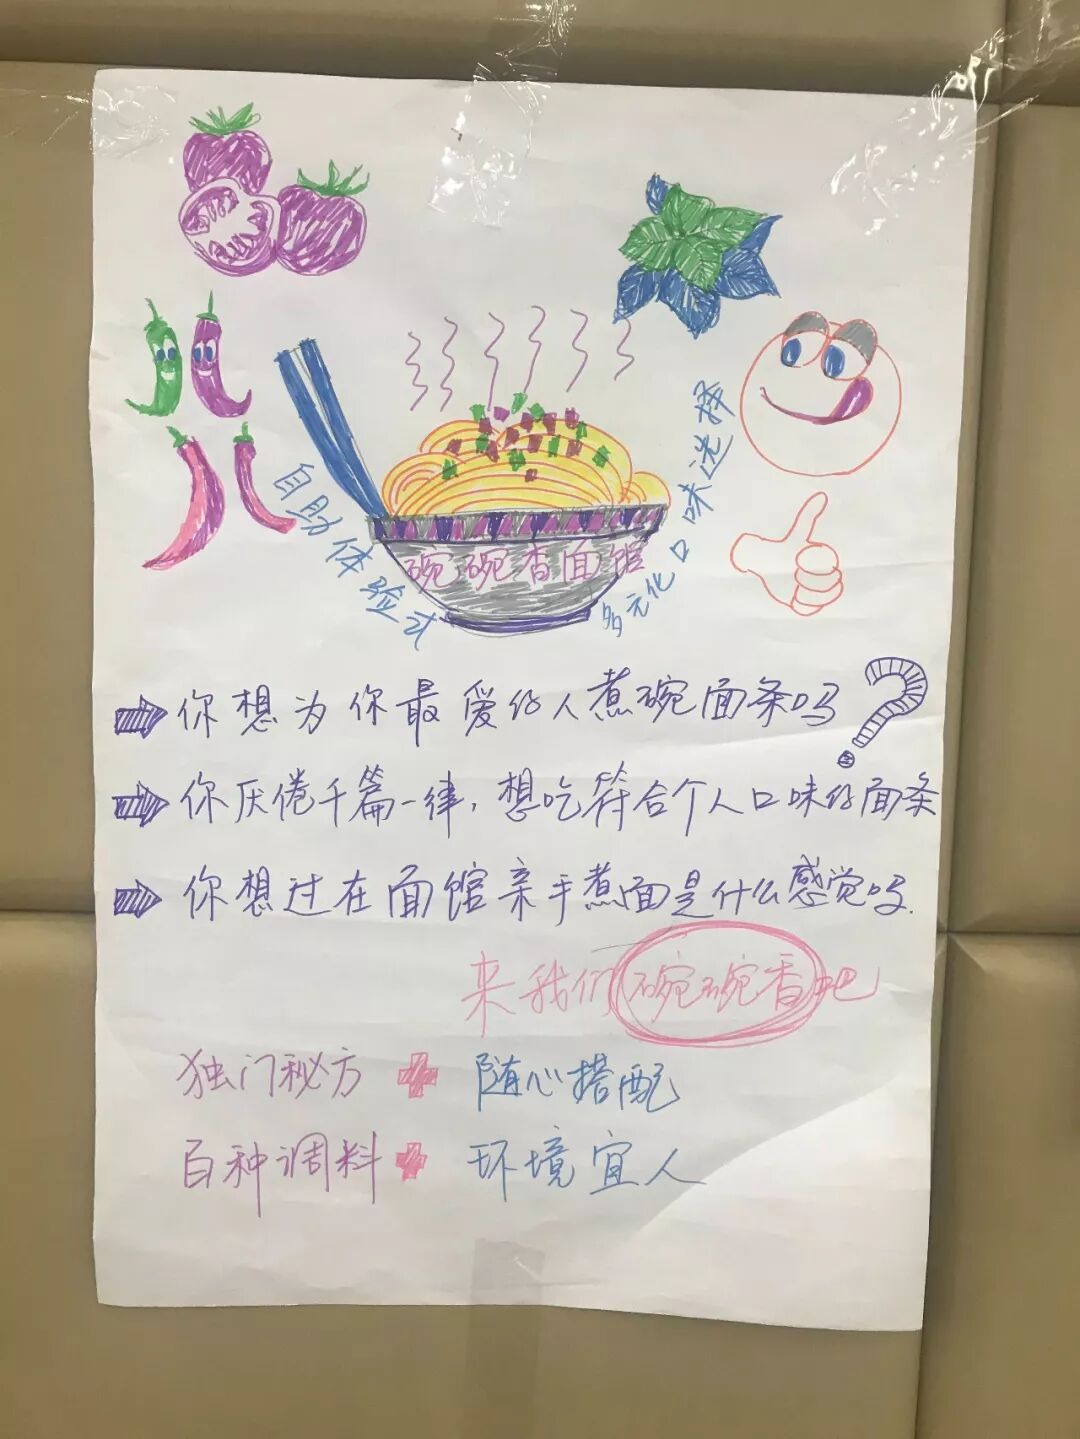 自助体验式
碗碗香面馆
多元化口味选择
你想为你最爱的人煮碗面条吗?
你厌倦千篇一律,想吃符合个人口味的面条
你想过在面馆亲手煮面是什么感觉吗.
来我们碗碗香吧
独门秘方+随心搭配
百种调料+环境宜人